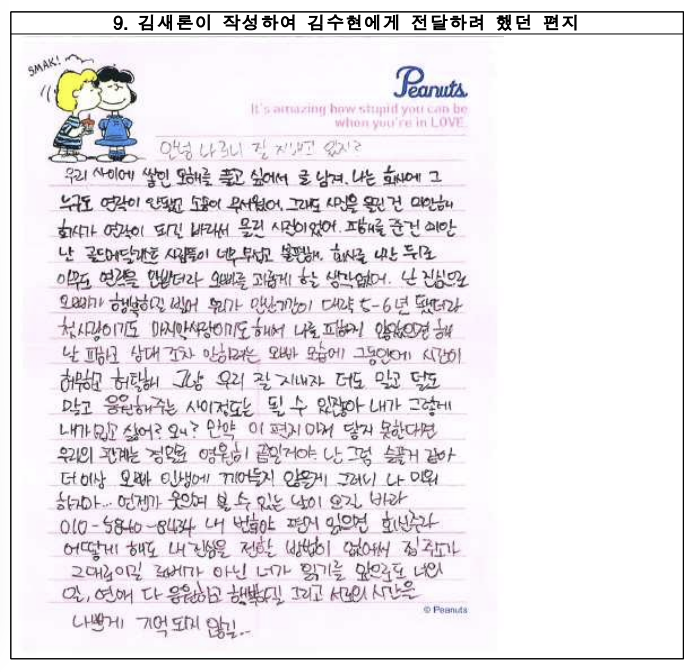 9. 김새론이 작성하여 김수현에게 전달하려 했던 편지
SMAK!
Peanuts
It's amazing how stupid you can be
when you're in LOVE
안녕 나 새로니 잘 지내고 있지?
우리 사이에 쌓인 오해를 풀고 싶어서 글 남겨. 나는 회사에 그
누구도 연락이 안됐고 소송이 무서웠어. 그래도 사진을 올린 건 미안해
회사가 연락이 되길 바라서 올린 사진이었어. 피해를 준건 미안
난 골드메달리스트 사람들이 너무 무섭고 불편해. 회사를 나간 뒤로
아무도 연락을 안받더라 오빠를 괴롭게 할 생각없어. 난 진심으로
오빠가 행복하길 빌어 우리가 만난기간이 대략 5-6년 됐더라
첫사랑이기도 마지막사랑이기도 해서 나를 피하지 않았으면 해
날 피하고 상대 조차 안하려는 오빠 모습에 그동안에 시간이
허무하고 허탈해 그냥 우리 잘 지내자 더도 말고 덜도
말고 응원해주는 사이정도는 될 수 있잖아 내가 그렇게
내가 밉고 싫어? 왜? 만약 이 편지 마저 닿지 못한다면
우리의 관계는 정말로 영원히 끝일거야 난 그럼 슬플거 같아
더이상 오빠 인생에 끼어들지 않을게 그러니 나 미워
하지마... 언젠가 웃으며 볼 수 있는 날이 오길 바라
010-5840-8434 내 번호야 편지 읽으면 회신주라
어떻게 해도 내 진심을 전할 방법이 없어서 집 주소가
그대로이길 로베가 아닌 너가 읽기를 앞으로도 너의
일, 연애 다 응원하고 행복하길 그리고 서로의 시간은
© Peanuts
나쁘게 기억되지 않길...